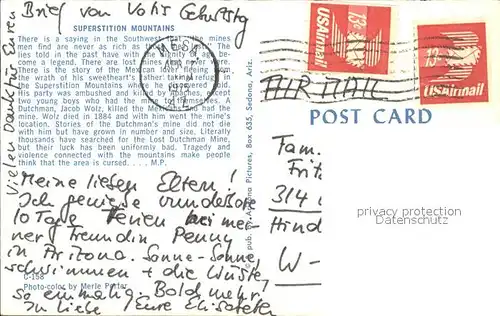 Vielen Dank für Euren
Brief von Volis Geburtstg
SUPERSTITION MOUNTAINS
There is a saying in the Southwest that "the mines
men find are never as rich as those they lost." The
lies told in the past have with the dignity of age be-
come a legend. There are lost mines all over
There is the story of the Mexican lover fleeing from
the wrath of his sweetheart's father taking refuge in
the Superstition Mountains where he discovered gold.
His party was ambushed and killed by Apaches, except
two young boys who had mined themselves. A
Dutchman, Jacob Wolz, killed the Mexicans and had the
mine. Wolz died in 1884 and with him went the mine's
location. Stories of the Dutchman's mine did not die
with him but have grown in number and size. Literally
thousands have searched for the Lost Dutchman Mine,
but their luck has been uniformly bad. Tragedy and
violence connected with the mountains make people
think that the area is cursed. . . . M.P.
Meine lieben Eltern!
Ich geniesse wunderschöne
10 Tage Ferien bei mei-
ner Freundin Penny
in Arizona. Sonne-Sonne,
schwimmen + die Wüste,
so einmalig. Bald mehr,
In Liebe Eure Elisabeth
C-158
Photo-color by Merle Porter
pub. by Petley Pictures, Box 635, Sedona, Ariz.
MESA
13c
USAirmail
13c
USAirmail
AIR MAIL
POST CARD
Fam.
Fritz
314
Hind
W-
privacy protection
Datenschutz